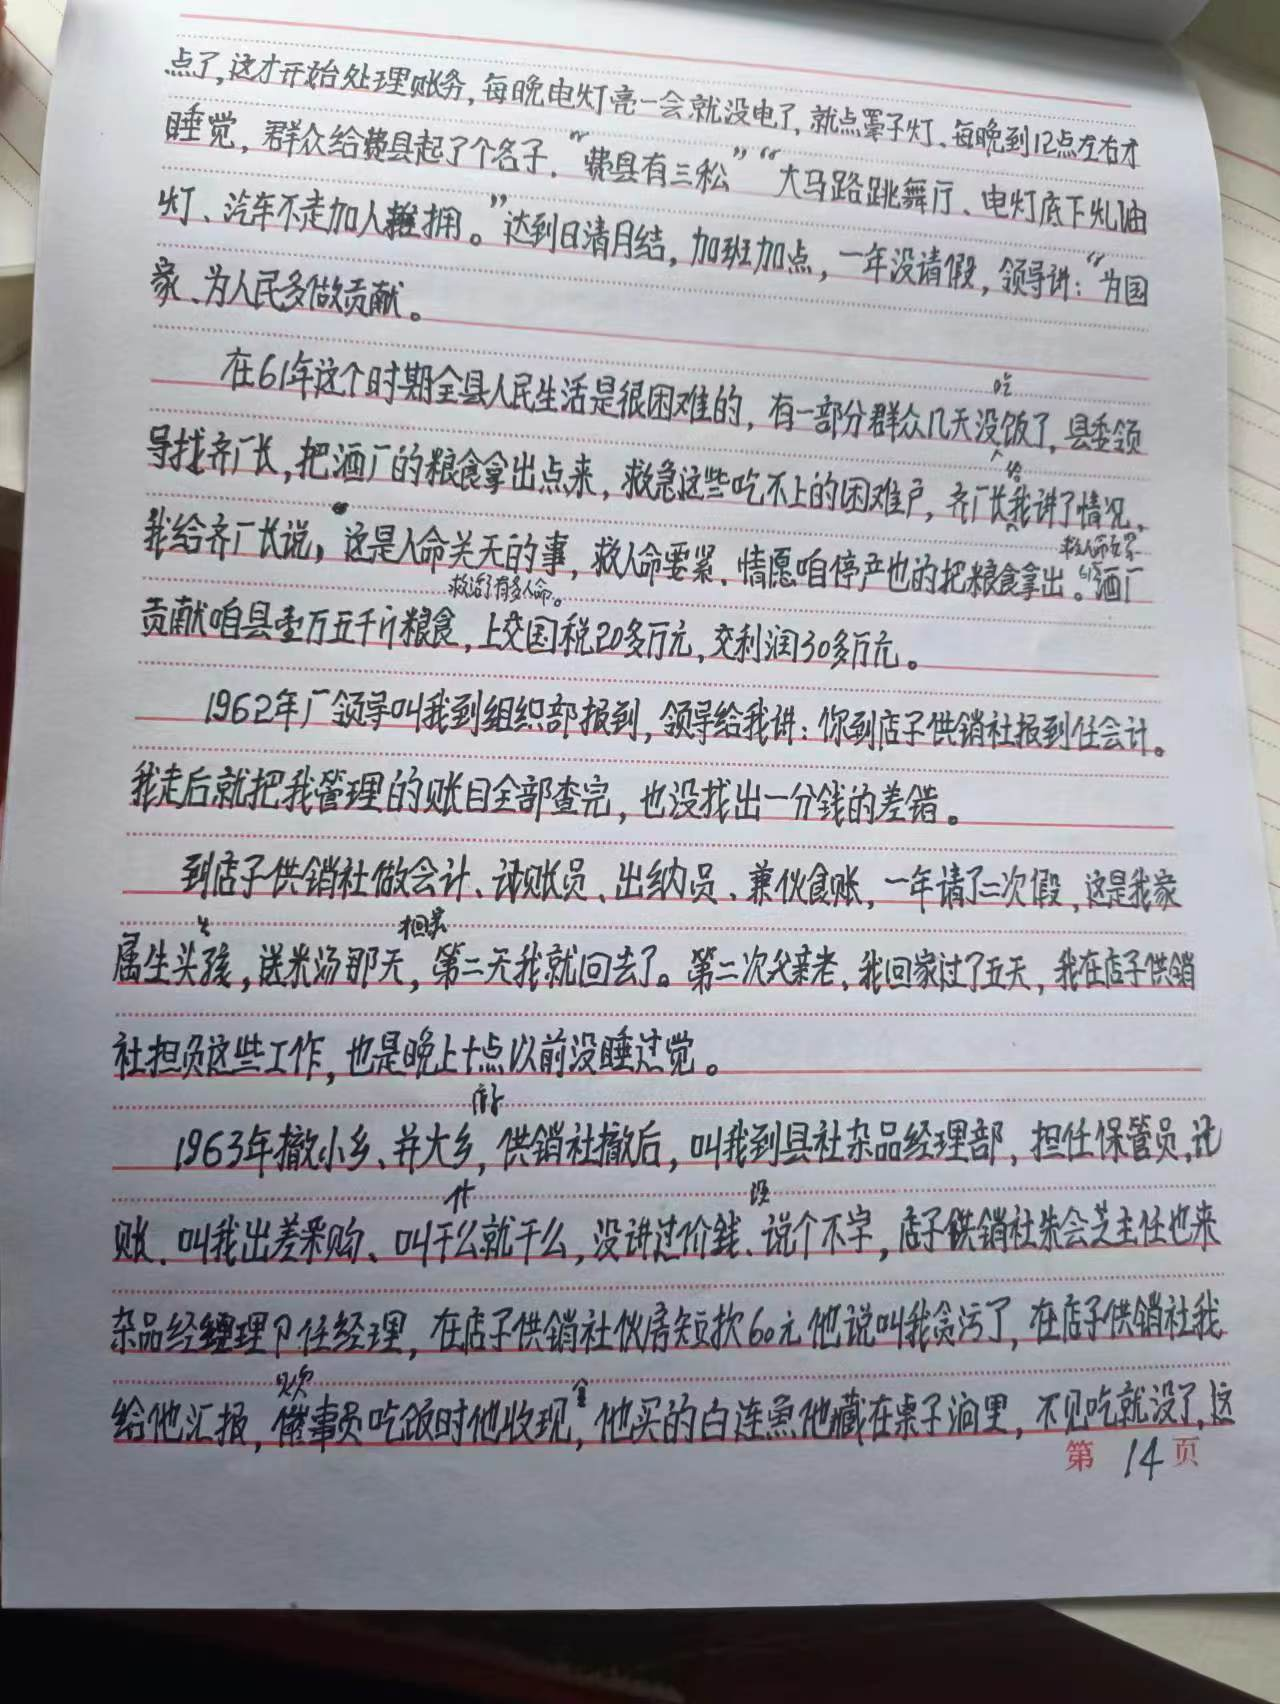 点了,这才开始处理账务,每晚电灯亮一会就没电了,就点罩子灯、每晚到12点左右才
睡觉,群众给费县起了个名子.“费县有三松”“大马路跳舞厅、电灯底下灿油
灯、汽车不走加人推拥。”达到日清月结,加班加点,一年没请假,领导讲:“为国
家、为人民多做贡献。
吃
在61年这个时期全县人民生活是很困难的,有一部分群众几天没饭了,县委领
给
导找齐厂长,把酒厂的粮食拿出点来,救急这些吃不上的困难户,齐厂长我讲了情况,
救人命要紧
我给齐厂长说,这是人命关天的事,救人命要紧.情愿咱停产也的把粮食拿出。61酒厂
救治了有多人命。
贡献咱县壹万五千斤粮食,上交国税20多万元,交利润30多万元。
1962年厂领导叫我到组织部报到,领导给我讲:你到店子供销社报到任会计。
我走后就把我管理的账目全部查完,也没找出一分钱的差错。
到店子供销社做会计、记账员、出纳员、兼伙食账,一年请了二次假,这是我家
回家
属生头孩,送米汤那天,第二天我就回去了。第二次父亲老,我回家过了五天,我在店子供销
社担负这些工作,也是晚上十点以前没睡过觉。
1963年撤小乡、并大乡,供销社撤后,叫我到县社杂品经理部,担任保管员,记
什
没
账.叫我出差采购、叫干么就干么,没讲过价錢、说个不字,店子供销社朱会芝主任也来
杂品经理卩任经理,在店子供销社伙房短款60元他说叫我贪污了,在店子供销社我
给他汇报,催事员吃饭时他收现,他买的白连鱼他藏在桌子洞里,不见吃就没了,这
第 14 页